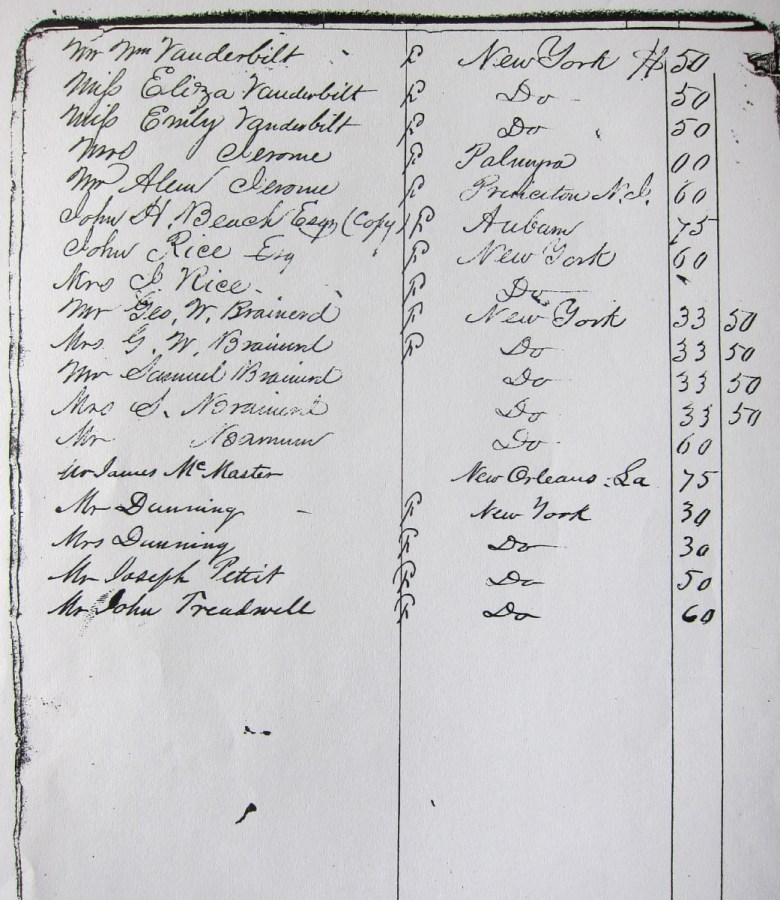 Mr Wm Vanderbilt P New York # 50
Miss Eliza Vanderbilt P Do 50
Miss Emily Vanderbilt P Do 50
Mrs Jerome P Palmyra 00
Mr Jerome P Princeton N.J. 60
John H. Beach Esqr (Copy) P Auburn 75
John Rice Esq P New York 60
Mrs J Rice Do
Mr Geo. W. Brainerd P New York 33 50
Mrs G. W. Brainerd P Do 33 50
Mr Samuel Brainerd Do 33 50
Mrs S. Brainerd Do 33 50
Mr Do 60
Mr James McMaster New Orleans La 75
Mr Dunning P New York 30
Mrs Dunning P Do 30
Mr Joseph Pettit P Do 50
Mr John Treadwell P Do 60